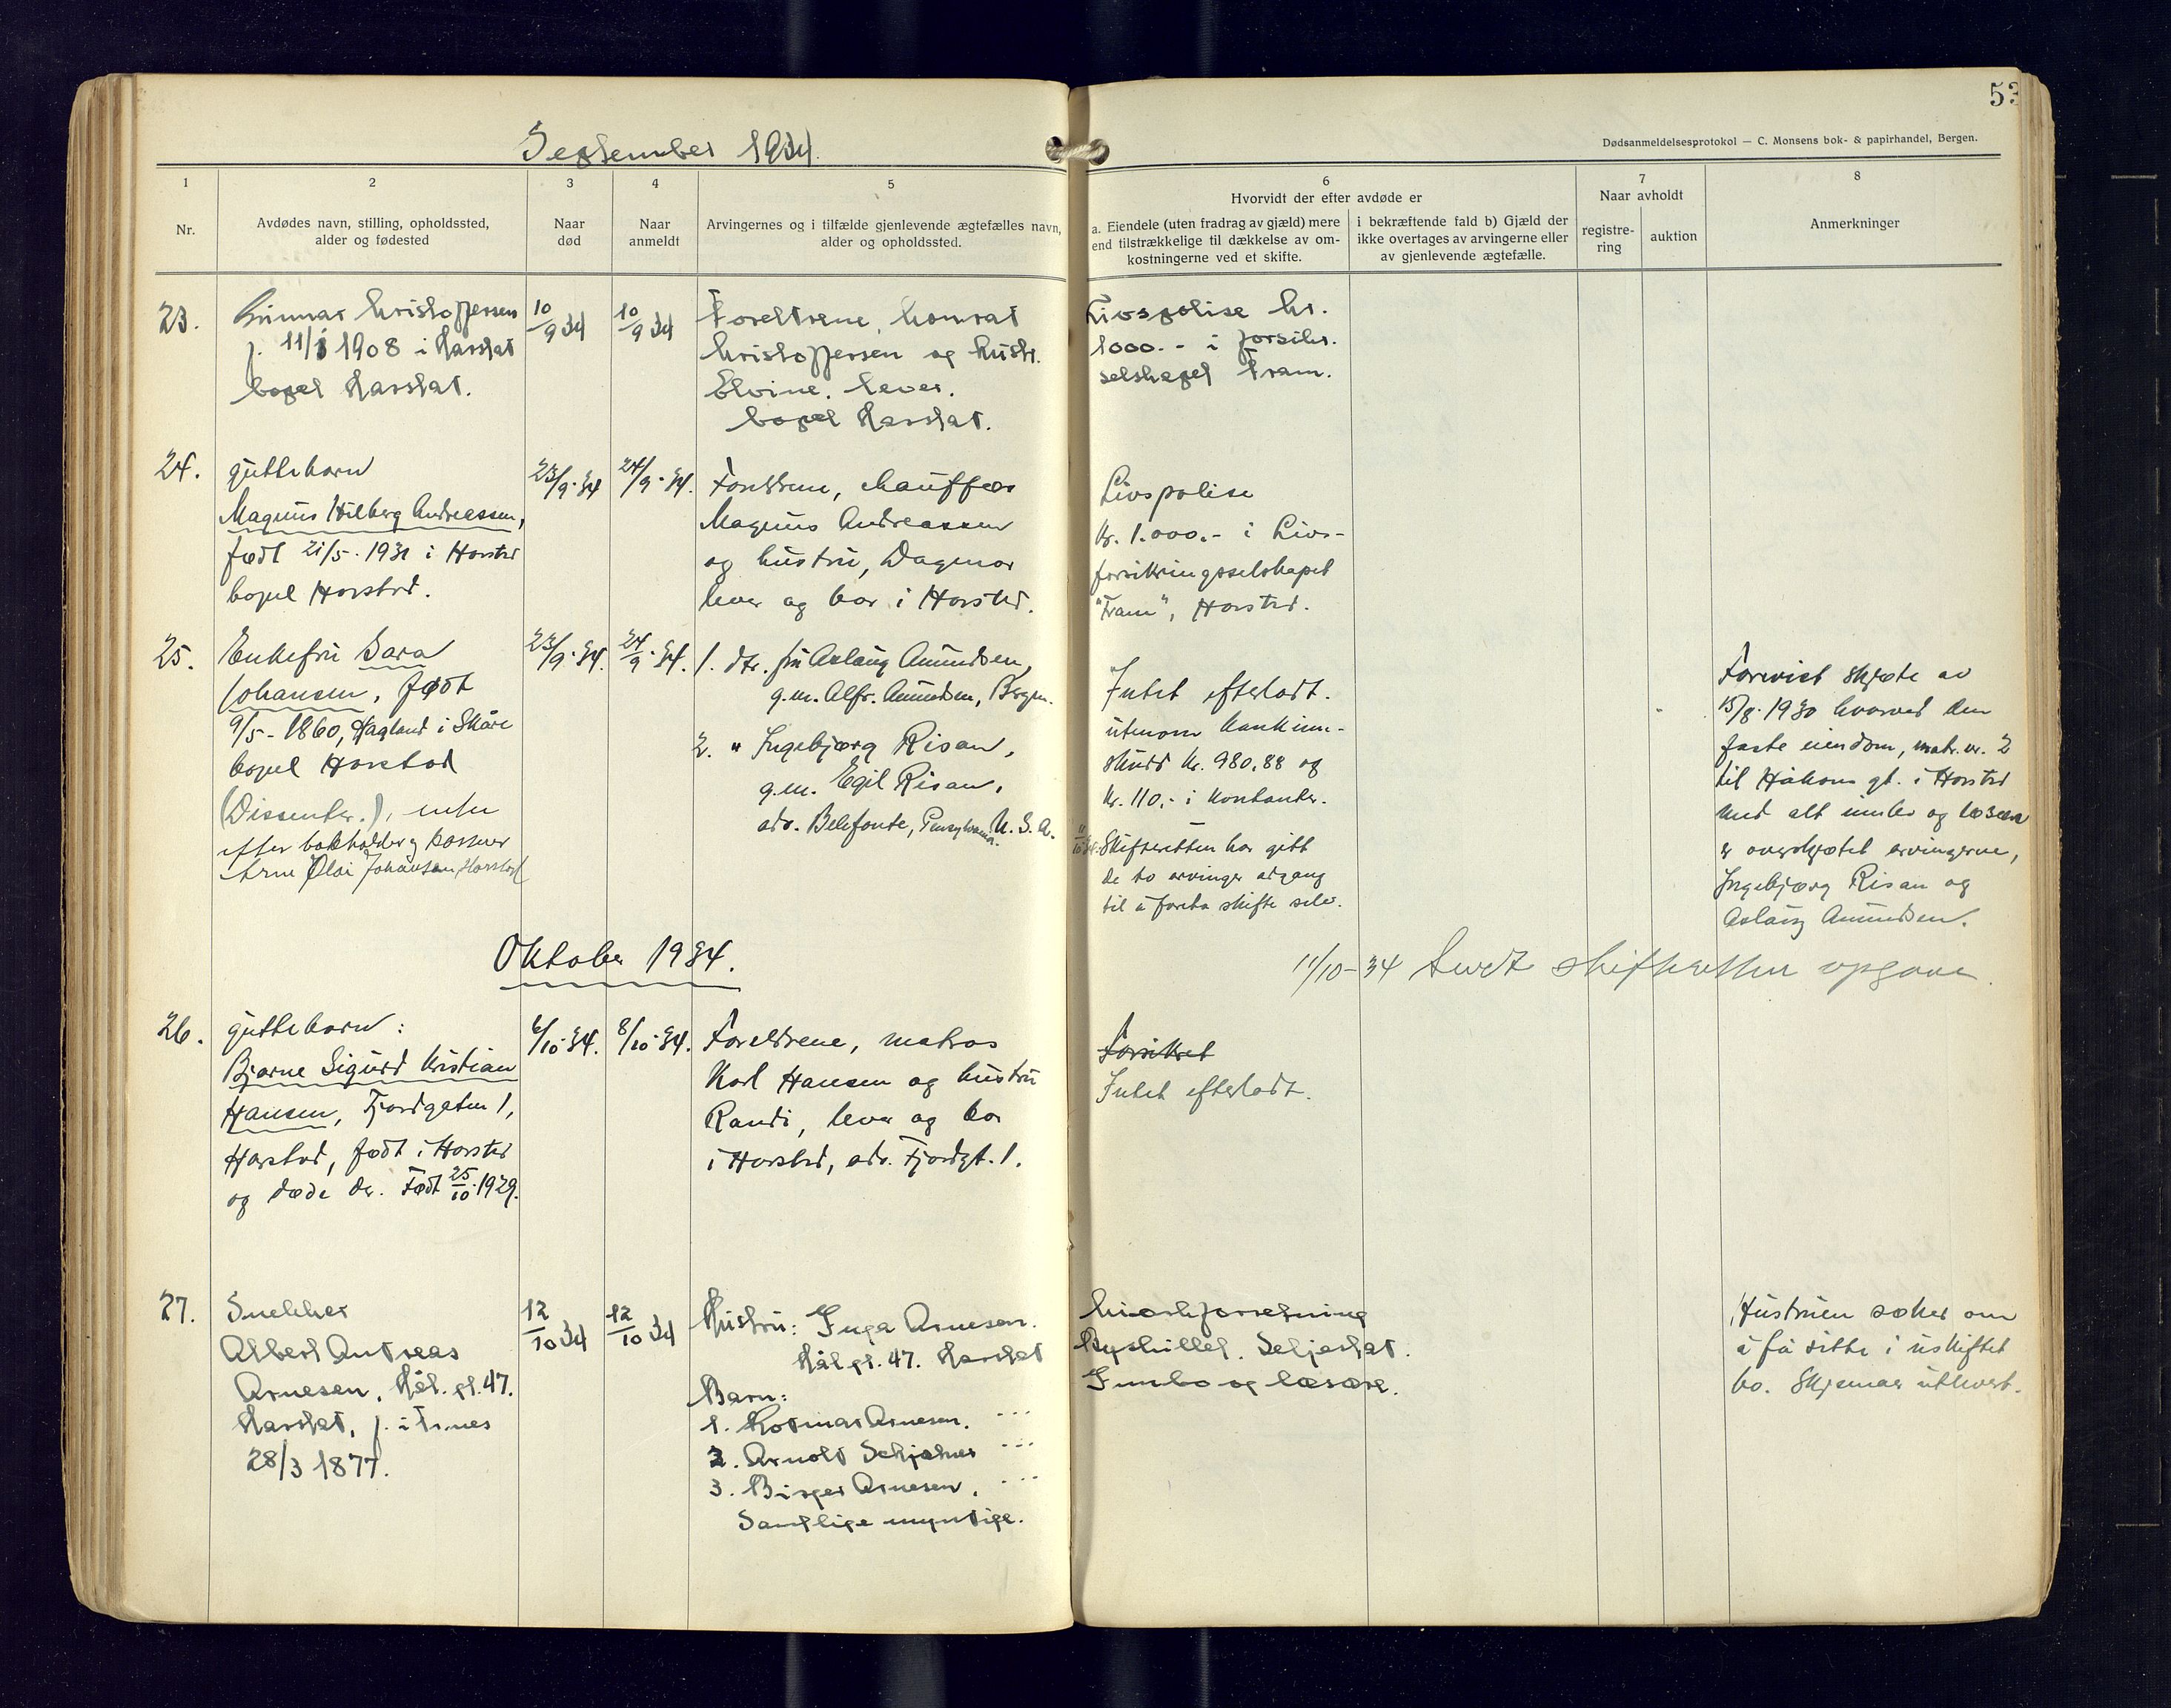 53
September 1934.
Dødsanmeldelsesprotokol — C. Monsens bok- & papirhandel, Bergen.
1
Nr.
2
Avdødes navn, stilling, opholdssted,
alder og fødested
3
Naar
død
4
Naar
anmeldt
5
Arvingernes og i tilfælde gjenlevende ægtefælles navn,
alder og opholdssted.
6
Hvorvidt der efter avdøde er
a. Eiendele (uten fradrag av gjæld) mere
end tilstrækkelige til dækkelse av om-
kostningerne ved et skifte.
i bekræftende fald b) Gjæld der
ikke overtages av arvingerne eller
av gjenlevende ægtefælle.
7
Naar avholdt
registre-
ring
auktion
8
Anmerkninger
23.
Gunnar Kristoffersen
f. 11/ 1908 i Harstad
bopel Harstad.
10/9 34
10/9 34
Foreldrene, Konrad
Kristoffersen og hustr.
Elvine. lever.
bopel Harstad.
Livspolise kr.
1000.- i forsikr.
selskapet Fram.
24.
guttebarn
Magnus Hilberg Andreassen,
født 21/5. 1931 i Harstad
bopel Harstad.
23/9. 34
24/9. 34.
Foreldrene, chauffør
Magnus Andreassen
og hustru, Dagmar
lever og bor i Harstad.
Livspolise
kr. 1.000.- i Livs-
forsikringsselskapet
"Fram", Harstad.
25.
Enkefru Sara
Johansen, født
9/5 - 1860, Hagland i Skåre
bopel Harstad
(Dissenter.), enke
efter bokholder og kasserer
Arne Olai Johansen Harstad
23/9. 34.
24/9. 34.
1. dtr. fru Aslaug Amundsen,
g.m. Alfr. Amundsen, Bergen.
2. " Ingebjørg Risan,
g.m. Egil Risan,
adr. Belefonte, Pensylvania. U.S.A.
Intet efterladt.
utenom bankinn-
skudd kr. 980,88 og
kr. 110,- i kontanter.
11/10 34. Skifteretten har gitt
de to arvinger adgang
til å foreta skifte selv.
Forevist skjøte av
15/8. 1930 hvorved den
faste eiendom, matr. nr. 2
til Håkons gt. i Harstad
med alt innbo og løsøre
er overskjøtet arvingerne,
Ingebjørg Risan og
Aslaug Amundsen.
Oktober 1934.
11/10-34 Sendt skifteretten opgave.
26.
guttebarn:
Bjarne Sigurd Kristian
Hansen, Fjordgaten 1,
Harstad, født i Harstad
og døde der. Født 25/10. 1929.
6/10. 34.
8/10. 34.
Foreldrene, matros
Karl Hansen og hustru
Randi, lever og bor
i Harstad, adr. Fjordgt. 1.
Forsikret
Intet efterladt.
27.
Snekker
Albert Andreas
Arnesen, Hål. gt. 47.
Harstad, f. i
28/3 1877.
12/10 34
12/10 34
Hustru: Inga Arnesen.
Hål gt. 47. Harstad
Barn:
1. Hotmar Arnesen. - - -
2. Arnold Schjølnes - - -
3. Birger Arnesen. - - -
Samtlige myndige.
Kioskforretning
Byskillet. Seljestad.
Innbo og løsøre.
Hustruen søker om
å få sitte i uskiftet
bo. Skjemaer utlevert.